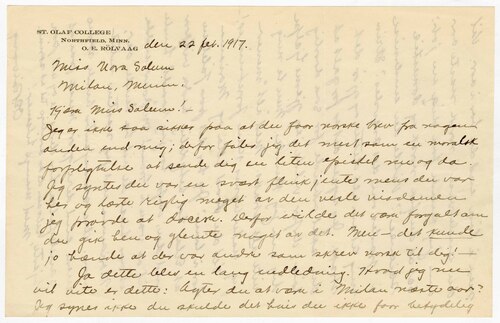 ST. OLAF COLLEGE
NORTHFIELD, MINN.
O. E. RÖLVAAG
den 22 feb. 1917.
Miss Nora Solum
Milan, Minn.
Kjære Miss Solum! –
Jeg er ikke saa sikker paa at du faar norske brev fra nogen
anden end mig; derfor føles jeg det mest som en moralsk
forpligtelse at sende dig en liten epistel nu og da.
Jeg syntes du var en svært flink jente mens du var
her og lærte rigtig meget av den verste visdommen
jeg prøvde at docere. Derfor vilde det være forgalt om
du gik hen og glemte noget av det. Men – det kunde
jo hænde at der var andre som skrev norsk til dig! –
Ja dette blev en lang indledning. Hvad jeg nu
vil vite er dette: Agter du at være i Milan næste aar?
Jeg synes ikke du skulde det hvis du ikke faar betydelig